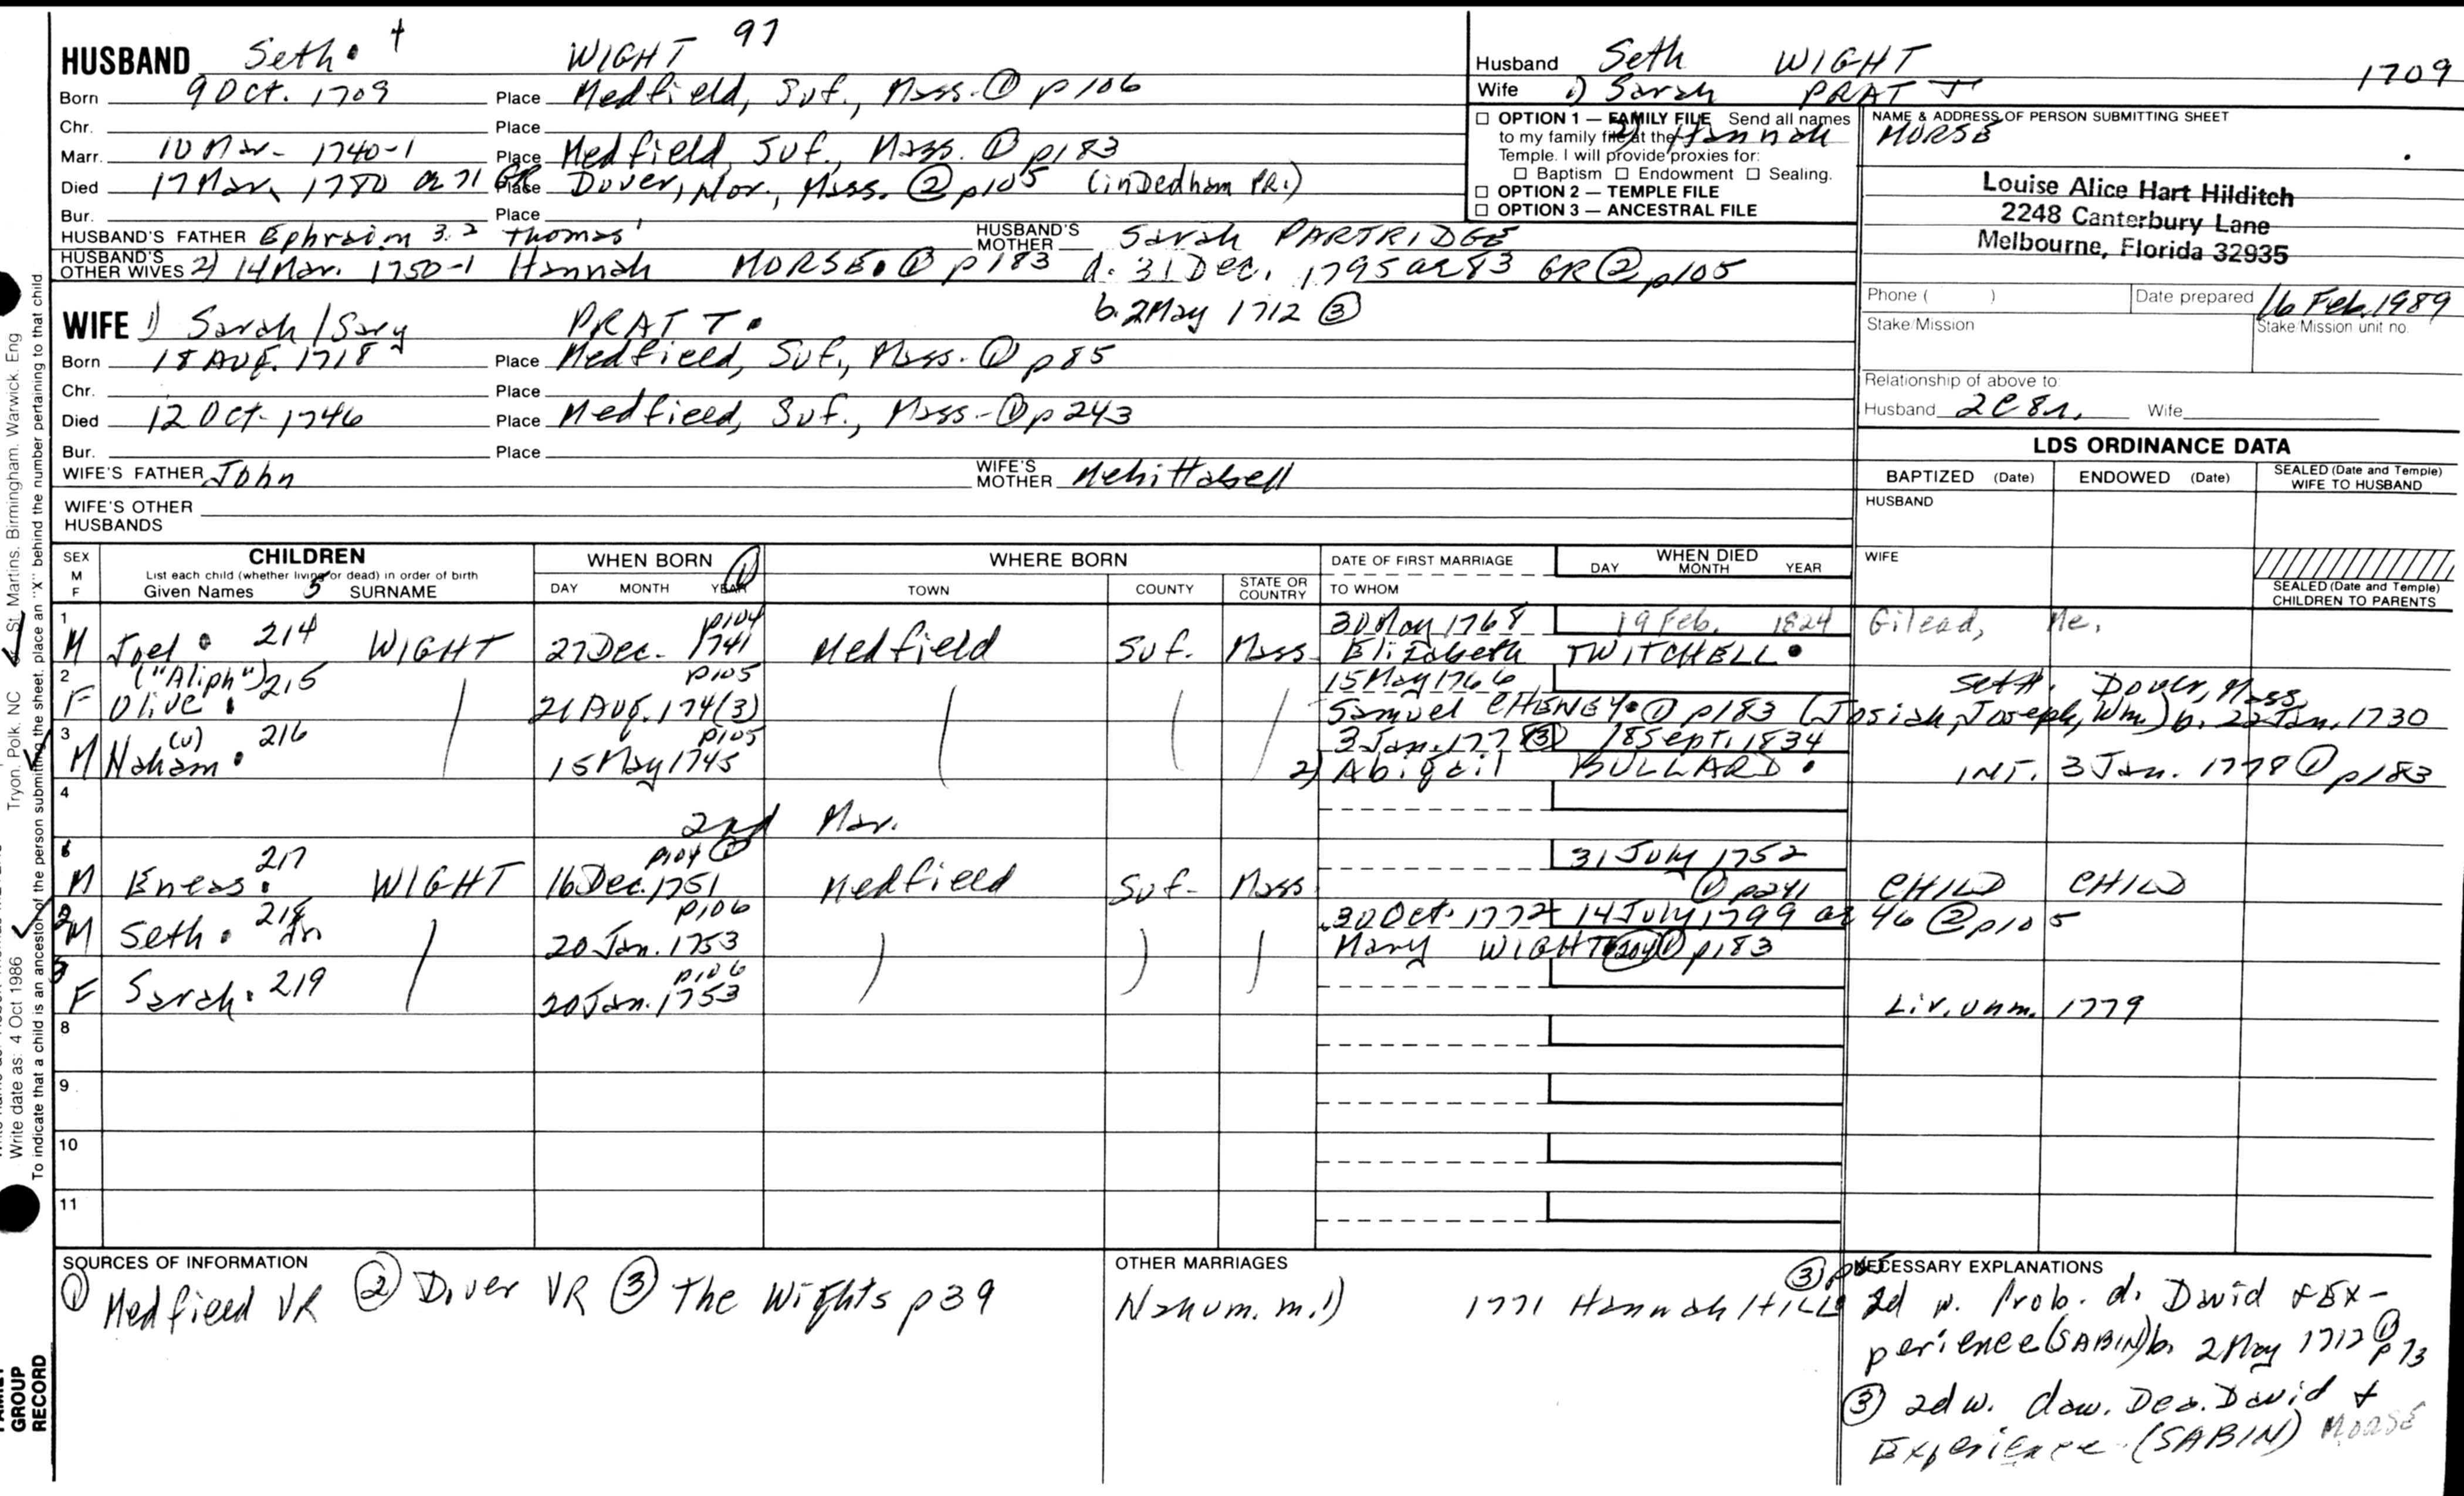 HUSBAND Seth. 4 WIGHT 97
Born 9 Oct. 1709 Place Medfield, Suf., Mass. ① p106
Chr. Place
Marr. 10 Mar. 1740-1 Place Medfield, Suf., Mass. ① p183
Died 17 Mar. 1780 ae 71 GR Place Dover, Nor., Mass. ② p105 (in Dedham PR.)
Bur. Place
HUSBAND'S FATHER Ephraim 3. 2 Thomas 1 HUSBAND'S MOTHER Sarah PARTRIDGE
HUSBAND'S OTHER WIVES 2) 14 Mar. 1750-1 Hannah MORSE. ① p183 d. 31 Dec. 1795 ae 83 GR ② p105
b. 2 May 1712 ③
WIFE 1) Sarah/Sary PRATT.
Born 18 Aug. 1718 Place Medfield, Suf., Mass. ① p85
Chr. Place
Died 12 Oct. 1746 Place Medfield, Suf., Mass. ① p243
Bur. Place
WIFE'S FATHER John WIFE'S MOTHER Mehittabell
WIFE'S OTHER HUSBANDS
Husband Seth WIGHT 1709
Wife 1) Sarah PRATT
2) Hannah MORSE
☐ OPTION 1 — FAMILY FILE Send all names
to my family file at the
Temple. I will provide proxies for:
☐ Baptism ☐ Endowment ☐ Sealing.
☐ OPTION 2 — TEMPLE FILE
☐ OPTION 3 — ANCESTRAL FILE
NAME & ADDRESS OF PERSON SUBMITTING SHEET
Louise Alice Hart Hilditch
2248 Canterbury Lane
Melbourne, Florida 32935
Phone ( ) Date prepared 16 Feb. 1989
Stake/Mission Stake/Mission unit no.
Relationship of above to:
Husband 2C8r. Wife
LDS ORDINANCE DATA
BAPTIZED (Date) ENDOWED (Date) SEALED (Date and Temple) WIFE TO HUSBAND
HUSBAND
WIFE
SEALED (Date and Temple) CHILDREN TO PARENTS
SEX M F
CHILDREN
List each child (whether living or dead) in order of birth
Given Names 5 SURNAME
WHEN BORN ①
DAY MONTH YEAR
WHERE BORN
TOWN COUNTY STATE OR COUNTRY
DATE OF FIRST MARRIAGE
TO WHOM
WHEN DIED
DAY MONTH YEAR
1 p104 30 May 1768 19 Feb. 1824 Gilead, Me.
M Joel. 214 WIGHT 27 Dec. 1741 Medfield Suf. Mass. Elizabeth TWITCHELL.
2 ("Aliph") 215 p105 15 May 1766 Set#. Dover, Mass.
F Olive. 21 Aug. 174(3) Samuel CHENEY. ① p183 (Josiah, Joseph, Wm.) b. 22 Jan. 1730
3 (u) 216 p105 3 Jan. 1778 ③ 18 Sept. 1834
M Naham. 15 May 1745 2) Abigail BULLARD. INT. 3 Jan. 1778 ① p183
4
2nd Mar.
217 p104 ① 31 July 1752
M Eneas. WIGHT 16 Dec. 1751 Medfield Suf. Mass ① p241 CHILD CHILD
2 218 p106 30 Oct. 1772 14 July 1799 ae 46 ② p105
M Seth. Jr 20 Jan. 1753 Mary WIGHT (204) ① p183
3 p106
F Sarah. 219 20 Jan. 1753 Liv. unm. 1779
8
9
10
11
SOURCES OF INFORMATION
① Medfield VR ② Dover VR ③ The Wights p39
OTHER MARRIAGES
Nahum. m. 1) 1771 Hannah HILL ③
NECESSARY EXPLANATIONS
2d w. Prob. d. David & Ex-
perience (SABIN) b. 2 May 1712 ① p73
③ 2d w. dau. Dea. David &
Experience (SABIN) MORSE
St. Martins, Birmingham, Warwick, Eng
Tryon, Polk, NC
Write date as: 4 Oct 1986
To indicate that a child is an ancestor of the person submitting the sheet, place an "X" behind the number pertaining to that child.
FAMILY GROUP RECORD